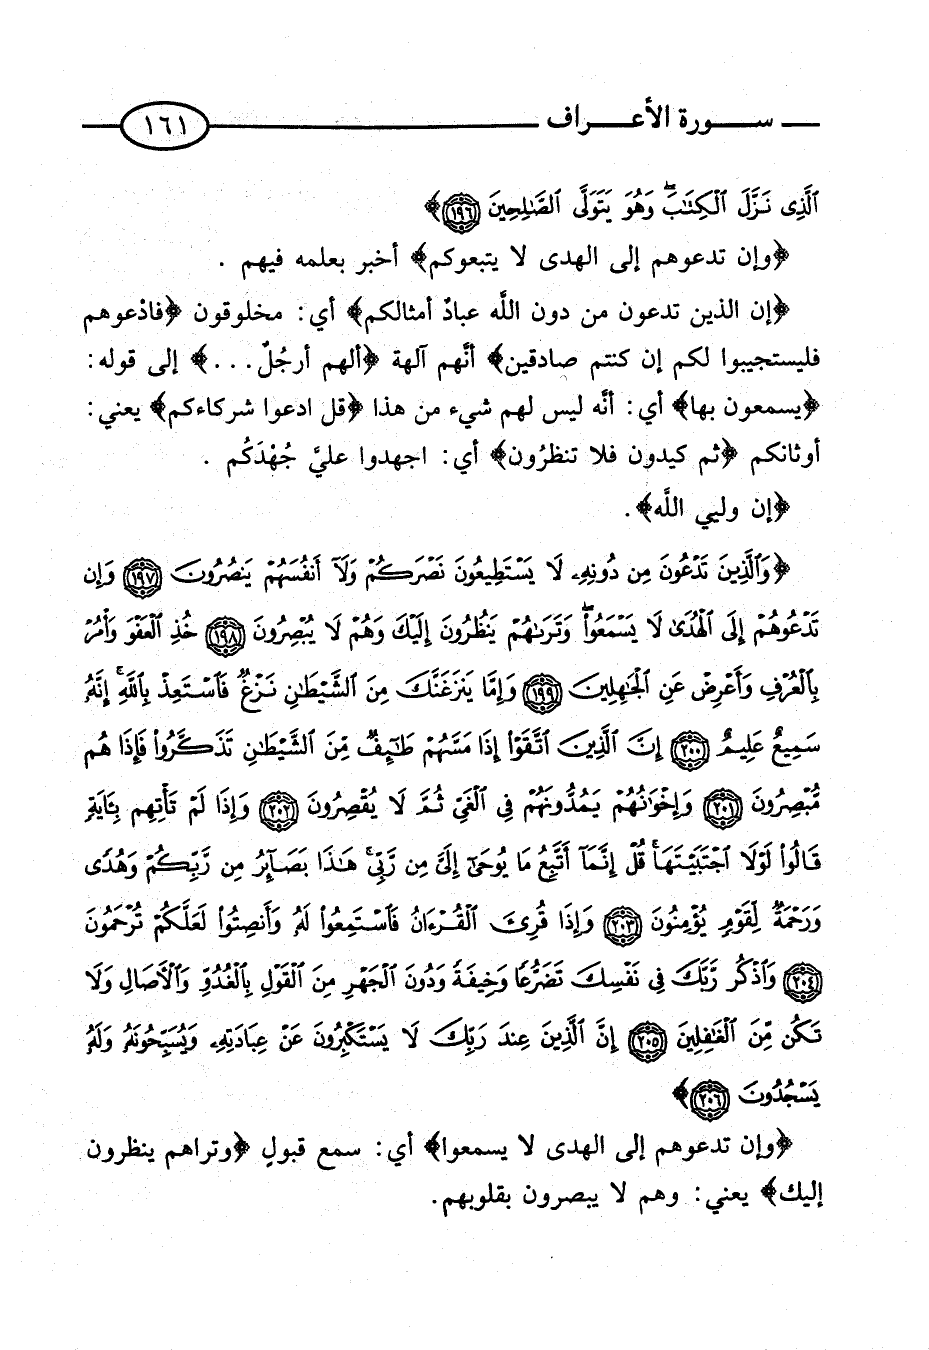 سورة الأعراف ١٦١
ٱلَّذِى نَزَّلَ ٱلْكِتَٰبَ ۖ وَهُوَ يَتَوَلَّى ٱلصَّٰلِحِينَ ١٩٦﴾
﴿وإن تدعوهم إلى الهدى لا يتبعوكم﴾ أخبر بعلمه فيهم .
﴿إن الذين تدعون من دون اللَّه عبادٌ أمثالكم﴾ أي: مخلوقون ﴿فادْعوهم
فليستجيبوا لكم إن كنتم صادقين﴾ أنَّهم آلهة ﴿ألهم أرجُلٌ...﴾ إلى قوله:
﴿يسمعون بها﴾ أي: أنَّه ليس لهم شيء من هذا ﴿قل ادعوا شركاءكم﴾ يعني:
أوثانكم ﴿ثم كيدون فلا تنظرُون﴾ أي: اجهدوا عليَّ جُهْدَكُم .
﴿إن وليي اللَّه﴾.
﴿وَٱلَّذِينَ تَدْعُونَ مِن دُونِهِۦ لَا يَسْتَطِيعُونَ نَصْرَكُمْ وَلَآ أَنفُسَهُمْ يَنصُرُونَ ١٩٧ وَإِن
تَدْعُوهُمْ إِلَى ٱلْهُدَىٰ لَا يَسْمَعُوا۟ ۖ وَتَرَىٰهُمْ يَنظُرُونَ إِلَيْكَ وَهُمْ لَا يُبْصِرُونَ ١٩٨ خُذِ ٱلْعَفْوَ وَأْمُرْ
بِٱلْعُرْفِ وَأَعْرِضْ عَنِ ٱلْجَٰهِلِينَ ١٩٩ وَإِمَّا يَنزَغَنَّكَ مِنَ ٱلشَّيْطَٰنِ نَزْغٌ فَٱسْتَعِذْ بِٱللَّهِ ۚ إِنَّهُۥ
سَمِيعٌ عَلِيمٌ ٢٠٠ إِنَّ ٱلَّذِينَ ٱتَّقَوْا۟ إِذَا مَسَّهُمْ طَٰٓئِفٌ مِّنَ ٱلشَّيْطَٰنِ تَذَكَّرُوا۟ فَإِذَا هُم
مُّبْصِرُونَ ٢٠١ وَإِخْوَٰنُهُمْ يَمُدُّونَهُمْ فِى ٱلْغَىِّ ثُمَّ لَا يُقْصِرُونَ ٢٠٢ وَإِذَا لَمْ تَأْتِهِم بِـَٔايَةٍ
قَالُوا۟ لَوْلَا ٱجْتَبَيْتَهَا ۚ قُلْ إِنَّمَآ أَتَّبِعُ مَا يُوحَىٰٓ إِلَىَّ مِن رَّبِّى ۚ هَٰذَا بَصَآئِرُ مِن رَّبِّكُمْ وَهُدًى
وَرَحْمَةٌ لِّقَوْمٍ يُؤْمِنُونَ ٢٠٣ وَإِذَا قُرِئَ ٱلْقُرْءَانُ فَٱسْتَمِعُوا۟ لَهُۥ وَأَنصِتُوا۟ لَعَلَّكُمْ تُرْحَمُونَ
٢٠٤ وَٱذْكُر رَّبَّكَ فِى نَفْسِكَ تَضَرُّعًا وَخِيفَةً وَدُونَ ٱلْجَهْرِ مِنَ ٱلْقَوْلِ بِٱلْغُدُوِّ وَٱلْءَاصَالِ وَلَا
تَكُن مِّنَ ٱلْغَٰفِلِينَ ٢٠٥ إِنَّ ٱلَّذِينَ عِندَ رَبِّكَ لَا يَسْتَكْبِرُونَ عَنْ عِبَادَتِهِۦ وَيُسَبِّحُونَهُۥ وَلَهُۥ
يَسْجُدُونَ ٢٠٦﴾
﴿وإن تدعوهم إلى الهدى لا يسمعوا﴾ أي: سمع قبولٍ ﴿وتراهم ينظرون
إليك﴾ يعني: وهم لا يبصرون بقلوبهم.